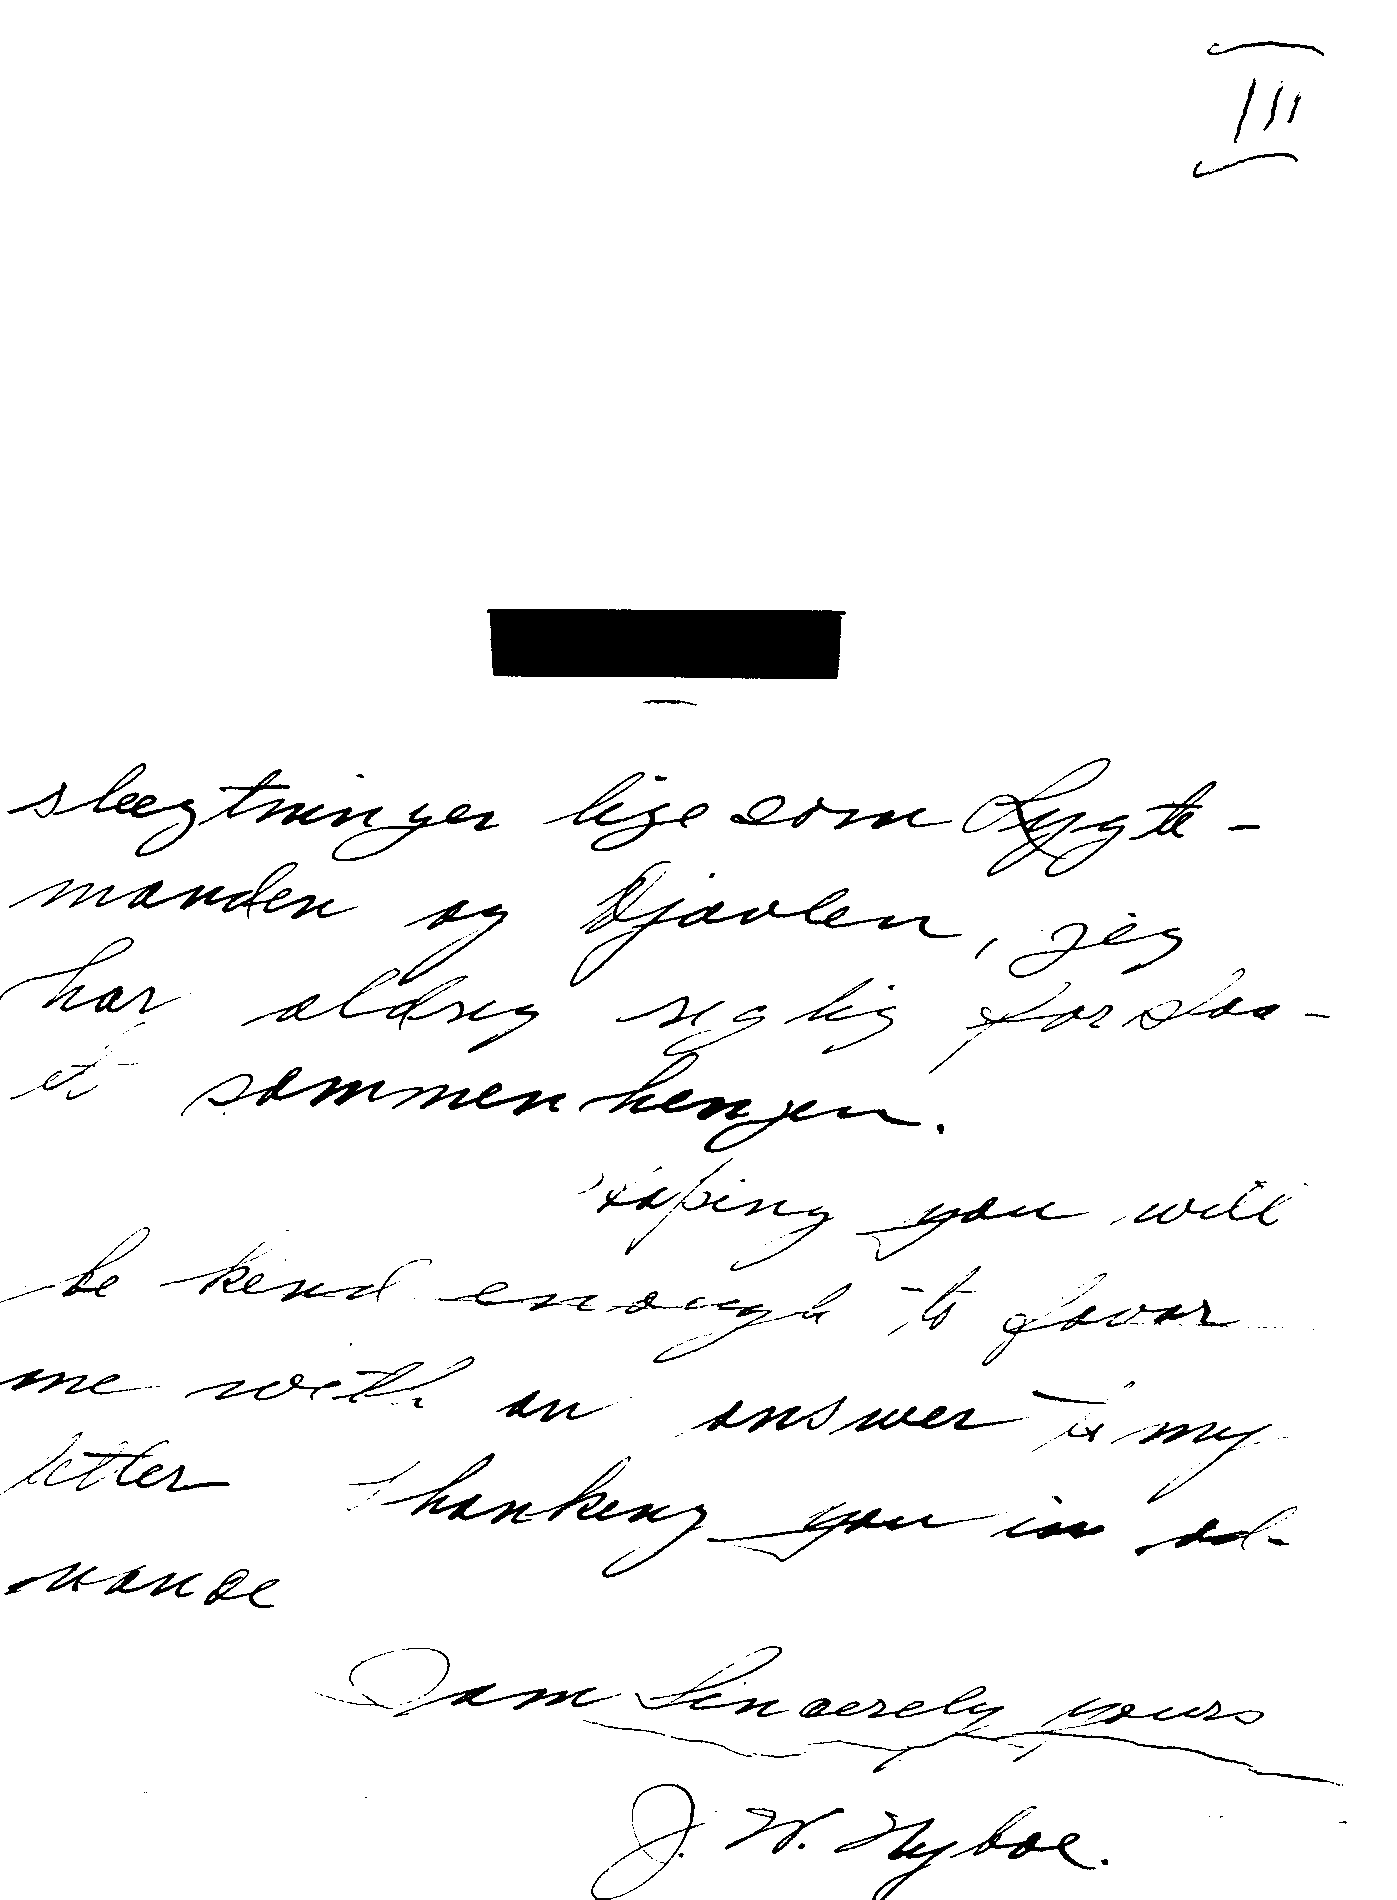 III
slegtninger lige som Lygte-
manden og Djavlen, jeg
har aldrig rigtig forstaa-
et sammenhengen.
Hoping you will
be kind enough to favor
me with an answer to my
letter thanking you in ad-
vance
I am Sincerely yours
J. W. Nyboe.